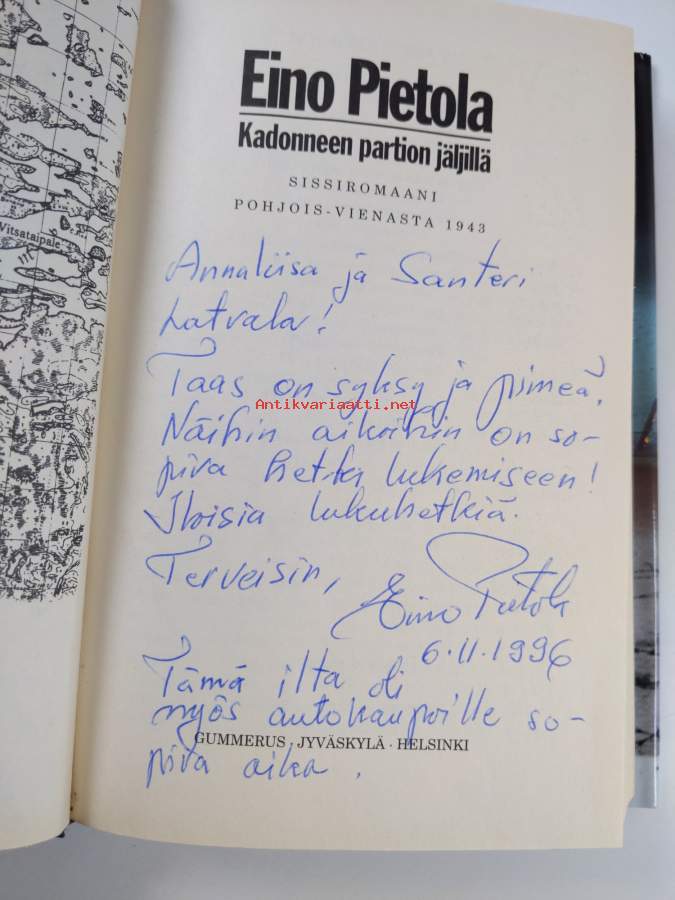 Eino Pietola
Kadonneen partion jäljillä
SISSIROMAANI
POHJOIS-VIENASTA 1943
Vitsataipale
Annaliisa ja Santeri
Latvala!
Taas on syksy ja pimeä.
Antikvariaatti.net
Näihin aikoihin on so-
piva hetki lukemiseen!
Iloisia lukuhetkiä.
Terveisin,
Eino Pietola
6.11.1996
Tämä ilta oli
myös autokaupoille so-
GUMMERUS · JYVÄSKYLÄ · HELSINKI
piva aika.